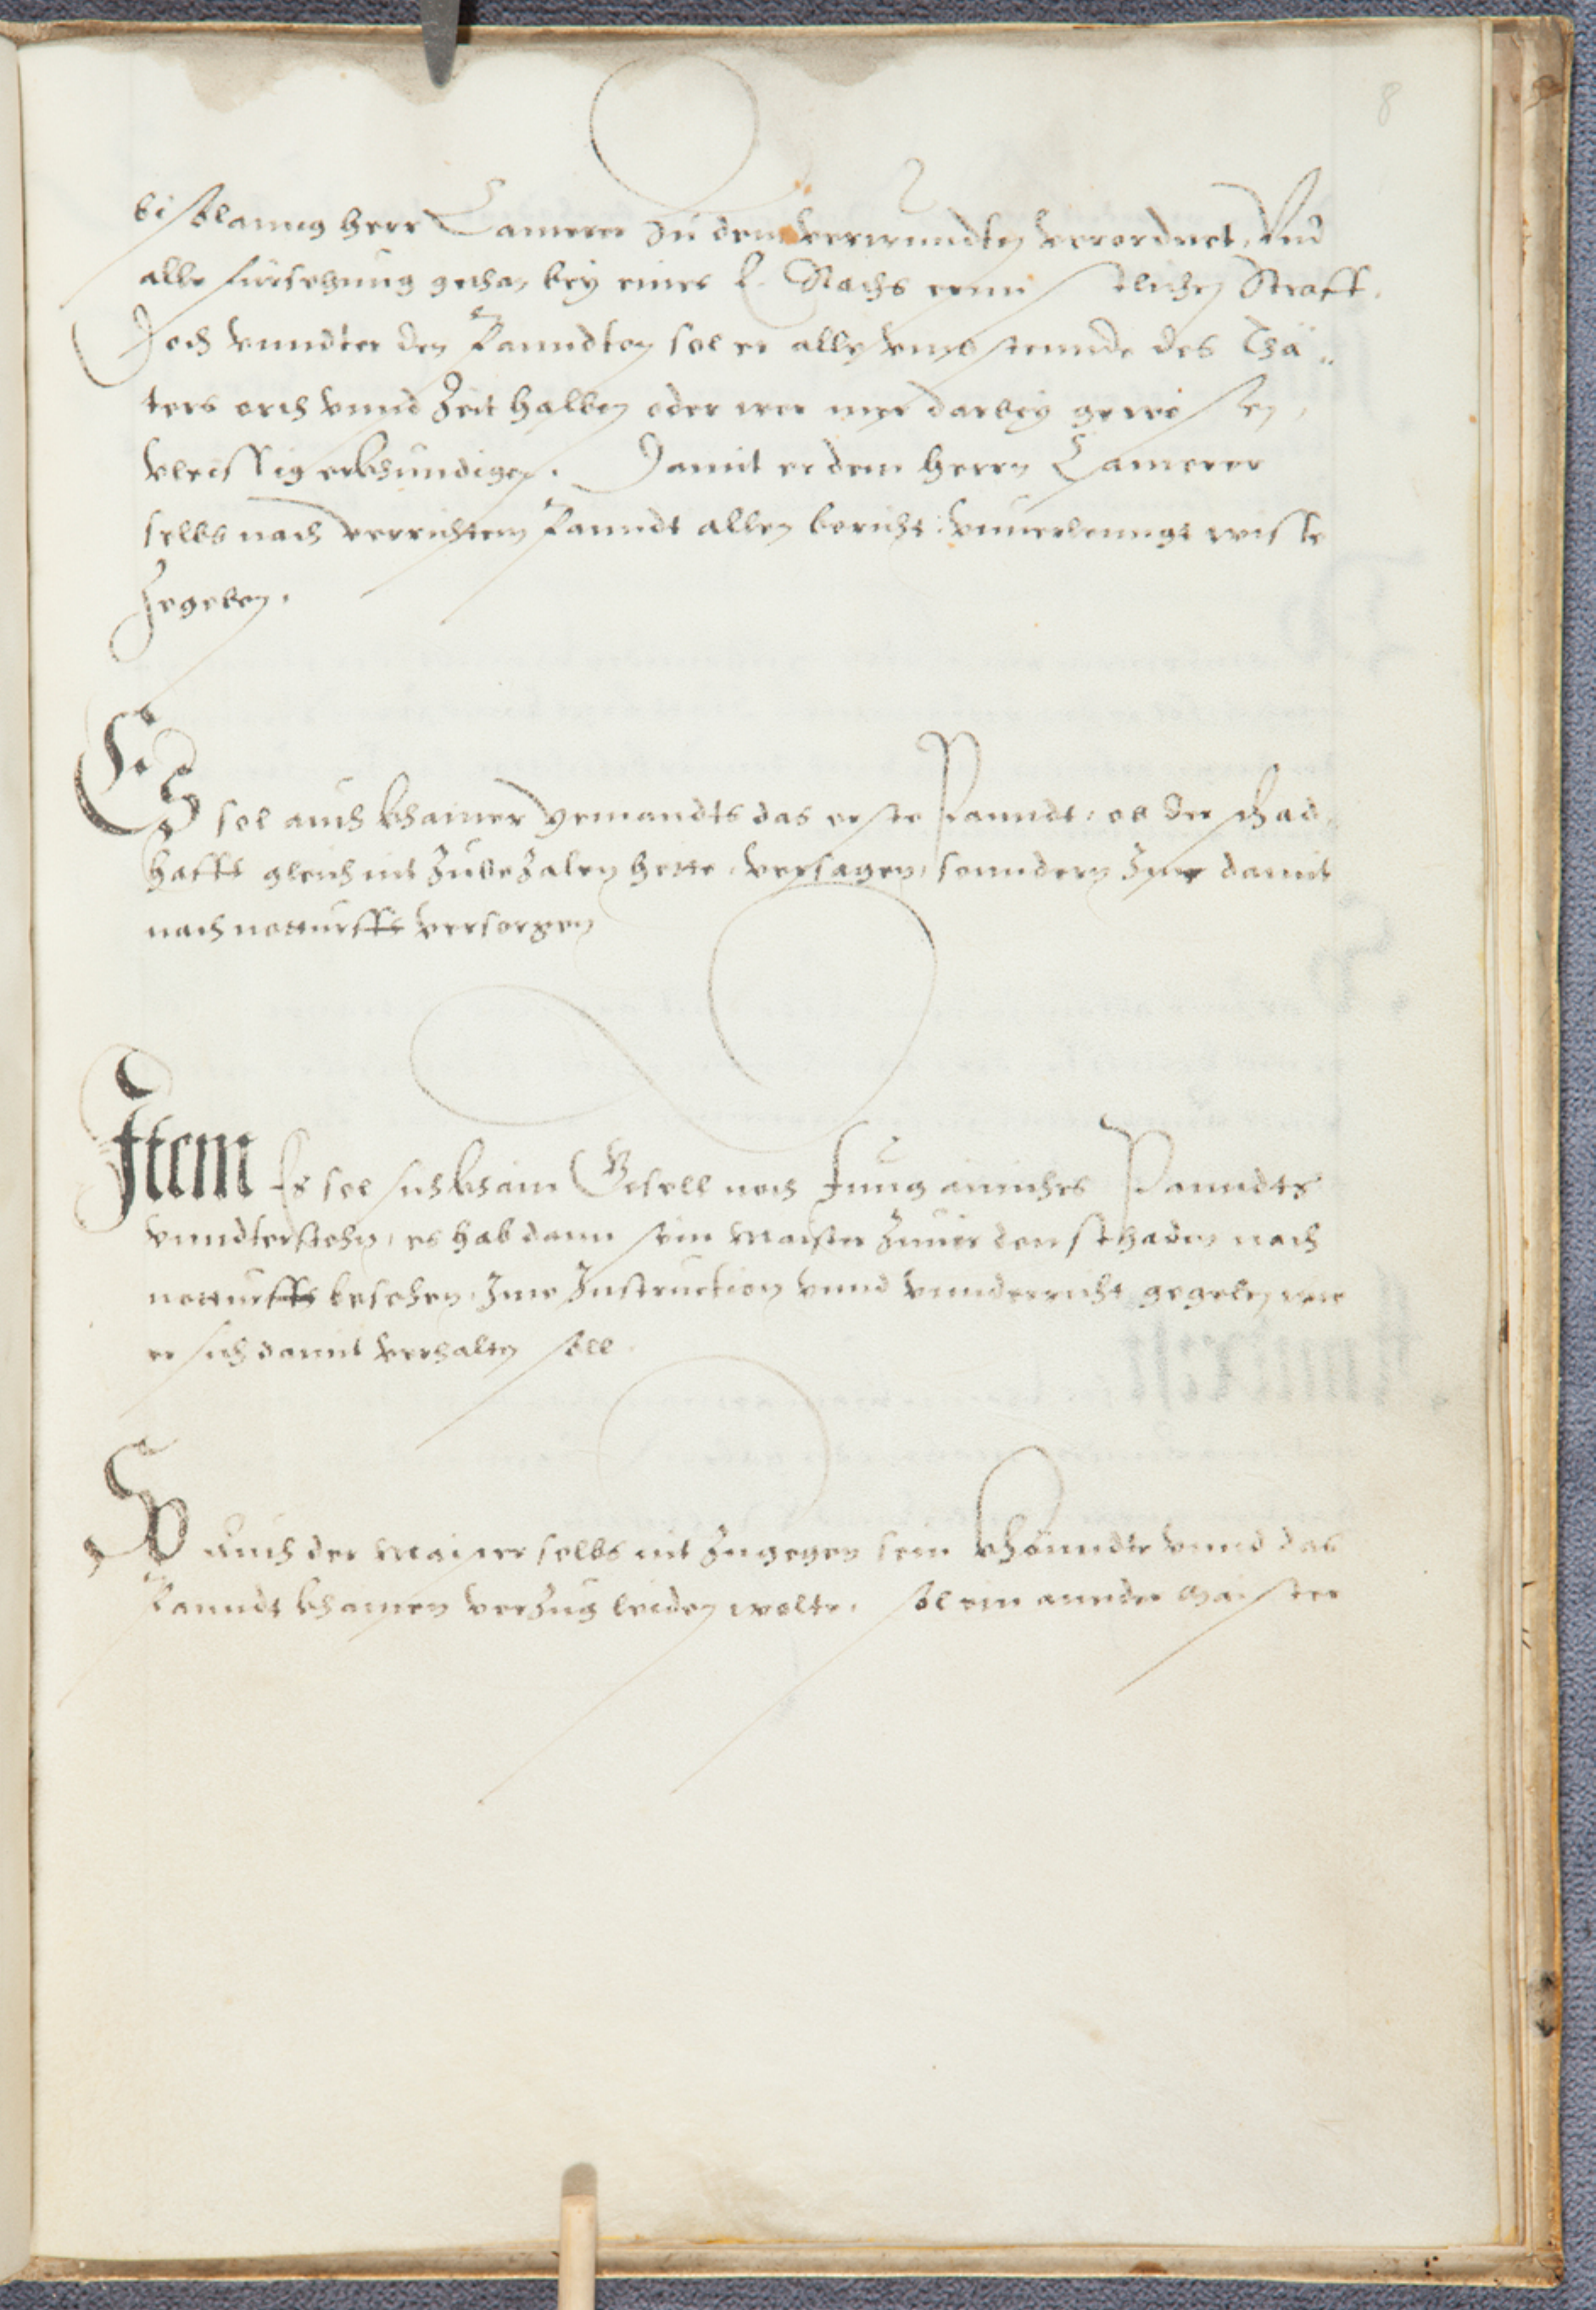 8
bis solanng herr Camerer zu dem verwundten verordnet, Vnd
alle fürsehung gethan, bey eines E. Raths ernnstlichen Straff.
Doch vnndter den Panndten sol er alle vmbstennde des Thä„
ters orth vnnd Zeit halben oder wer mer darbey gewesen,
vleissig erkhundigen. Damit er dem herrn Camerer
selbs nach verrichtem Panndt allen bericht vnuerlenngt wisse
Zegeben.
Es sol auch khainer yemandts das erste Panndt, ob der schad„
hafft gleich nit Zubezalen hette, versagen, sonndern Ime damit
nach notturfft versorgen
Item Es sol sich khain Gesell noch Jung ainiches Panndts
vnndterstehn, es hab dann sein Maister Zuuor den schaden nach
notturfft besehen, Ime Instruction vnnd vnnderricht gegeben wie
er sich damit verhalten soll.
So Auch der Maister selbs nit Zugegen sein khönndte vnnd das
Panndt khainen verzug leiden wolte, sol ein annder Maister